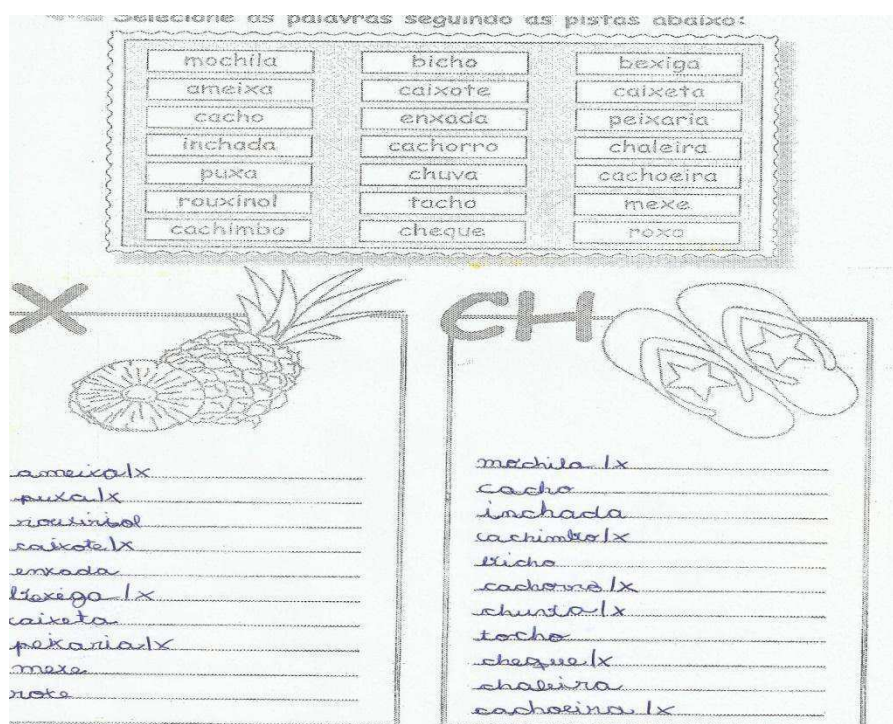 Selecione as palavras seguindo as pistas abaixo:
mochila bicho bexiga
ameixa caixote caixeta
cacho enxada peixaria
inchada cachorro chaleira
puxa chuva cachoeira
rouxinol tacho mexe
cachimbo cheque roxo
X
CH
ameixa/x
puxa/x
rouxinol
caixote/x
enxada
bexega/x
caixeta
pexaria/x
mexe
roxe
mochila /x
cacho
inchada
cachimbo/x
bicho
cachorro/x
chuva/x
tocho
cheque/x
chaleira
cachoeira /x